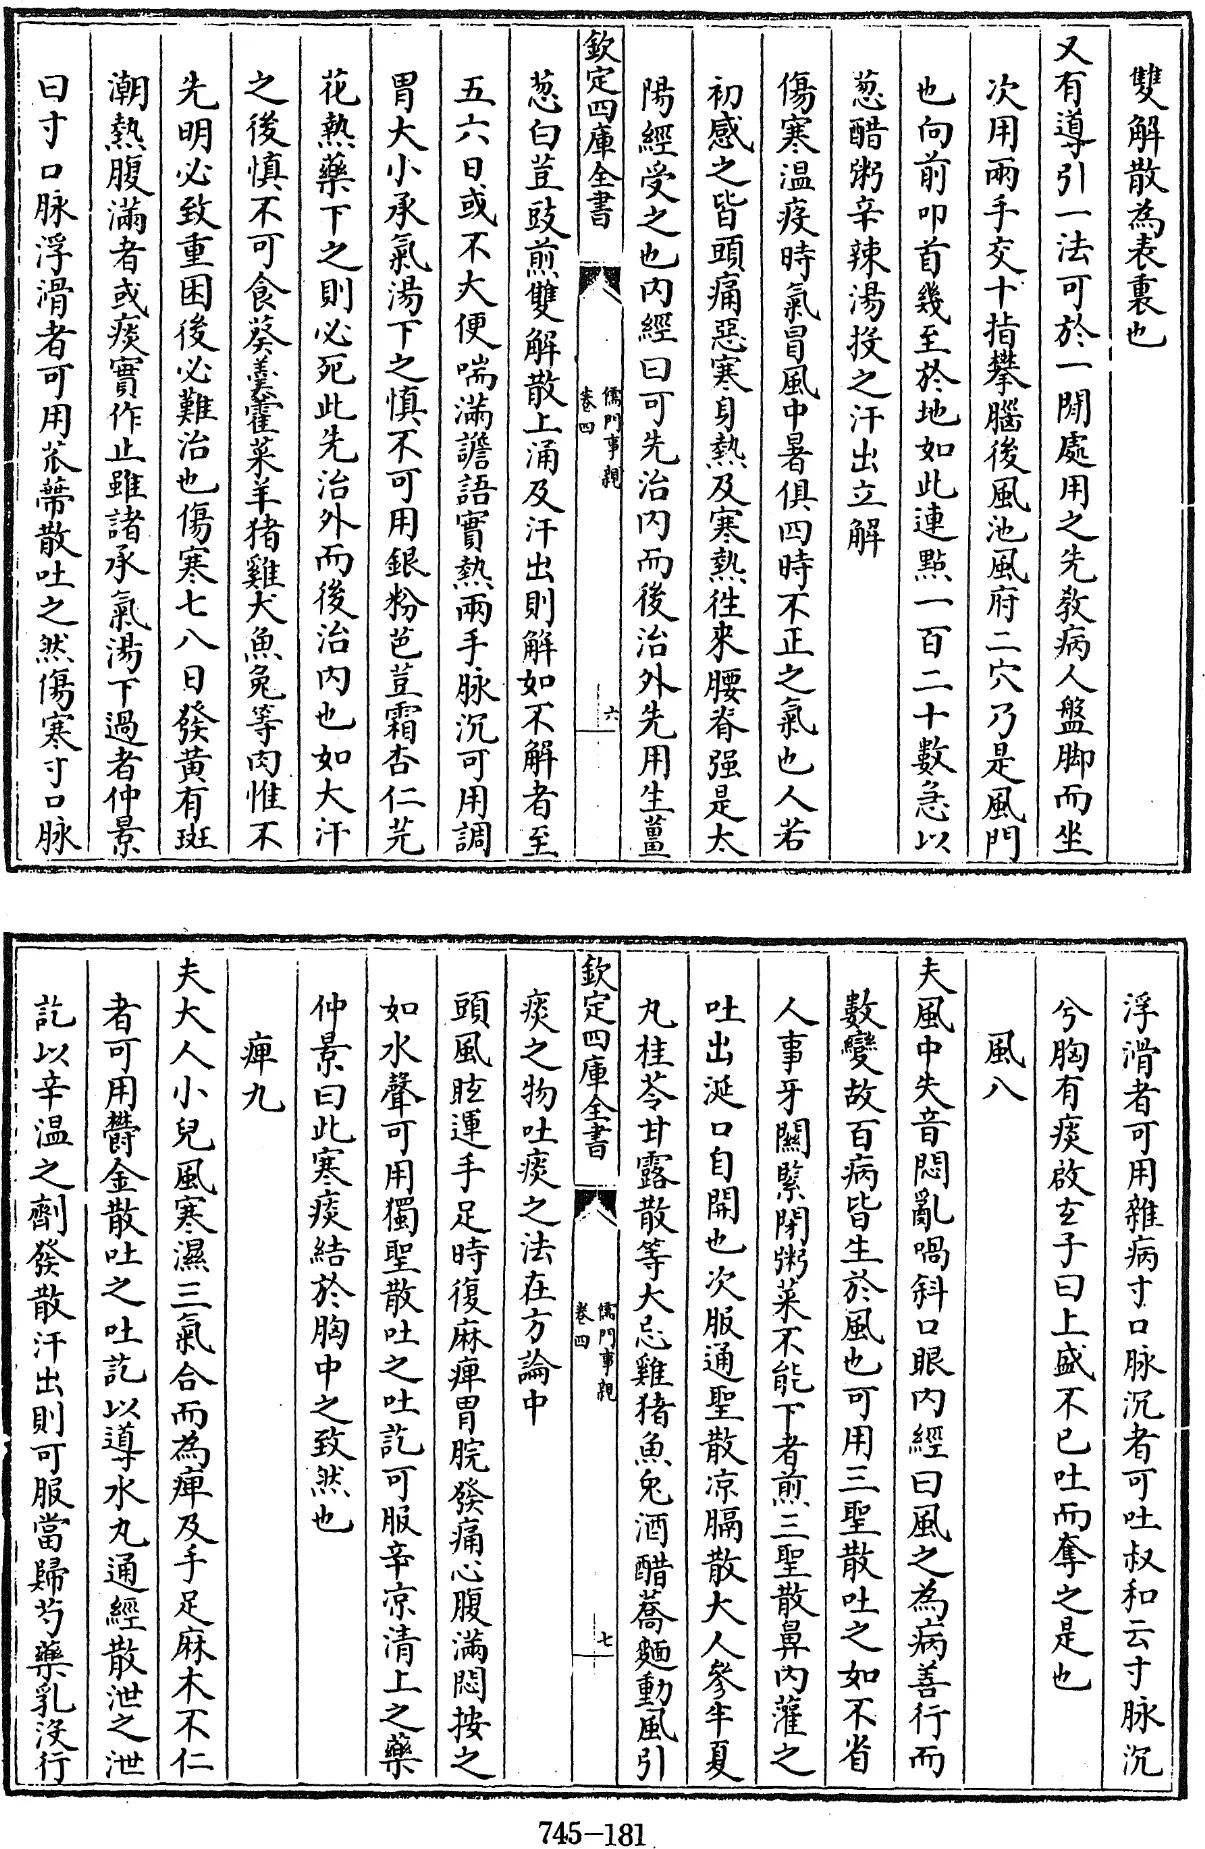 雙解散為表裏也
又有導引一法可於一閒處用之先教病人盤脚而坐
次用兩手交十指攀腦後風池風府二穴乃是風門
也向前叩首幾至於地如此連點一百二十數急以
葱醋粥辛辣湯投之汗出立解
傷寒温疫時氣冒風中暑俱四時不正之氣也人若
初感之皆頭痛惡寒身熱及寒熱徃來腰脊强是太
陽經受之也内經曰可先治内而後治外先用生薑
欽定四庫全書
儒門事親
卷四
六
葱白荳豉煎雙解散上涌及汗出則解如不解者至
五六日或不大便喘滿譫語實熱兩手脉沉可用調
胃大小承氣湯下之慎不可用銀粉芭荳霜杏仁芫
花熱藥下之則必死此先治外而後治内也如大汗
之後慎不可食葵羮藿菜羊猪雞犬魚兔等肉惟不
先明必致重困後必難治也傷寒七八日發黄有斑
潮熱腹滿者或痰實作止雖諸承氣湯下過者仲景
曰寸口脉浮滑者可用瓜蒂散吐之然傷寒寸口脉
浮滑者可用雜病寸口脉沉者可吐叔和云寸脉沉
兮胸有痰啟玄子曰上盛不已吐而奪之是也
風八
夫風中失音悶亂喎斜口眼内經曰風之為病善行而
數變故百病皆生於風也可用三聖散吐之如不省
人事牙關緊閉粥菜不能下者煎三聖散鼻内灌之
吐出涎口自開也次服通聖散凉膈散大人參半夏
丸桂苓甘露散等大忌雞猪魚兔酒醋蕎麵動風引
欽定四庫全書
儒門事親
卷四
七
痰之物吐痰之法在方論中
頭風眩運手足時復麻痺胃脘發痛心腹滿悶按之
如水聲可用獨聖散吐之吐訖可服辛凉清上之藥
仲景曰此寒痰結於胸中之致然也
痺九
夫大人小兒風寒濕三氣合而為痺及手足麻木不仁
者可用鬱金散吐之吐訖以導水丸通經散泄之泄
訖以辛温之劑發散汗出則可服當歸芍藥乳沒行
745-181